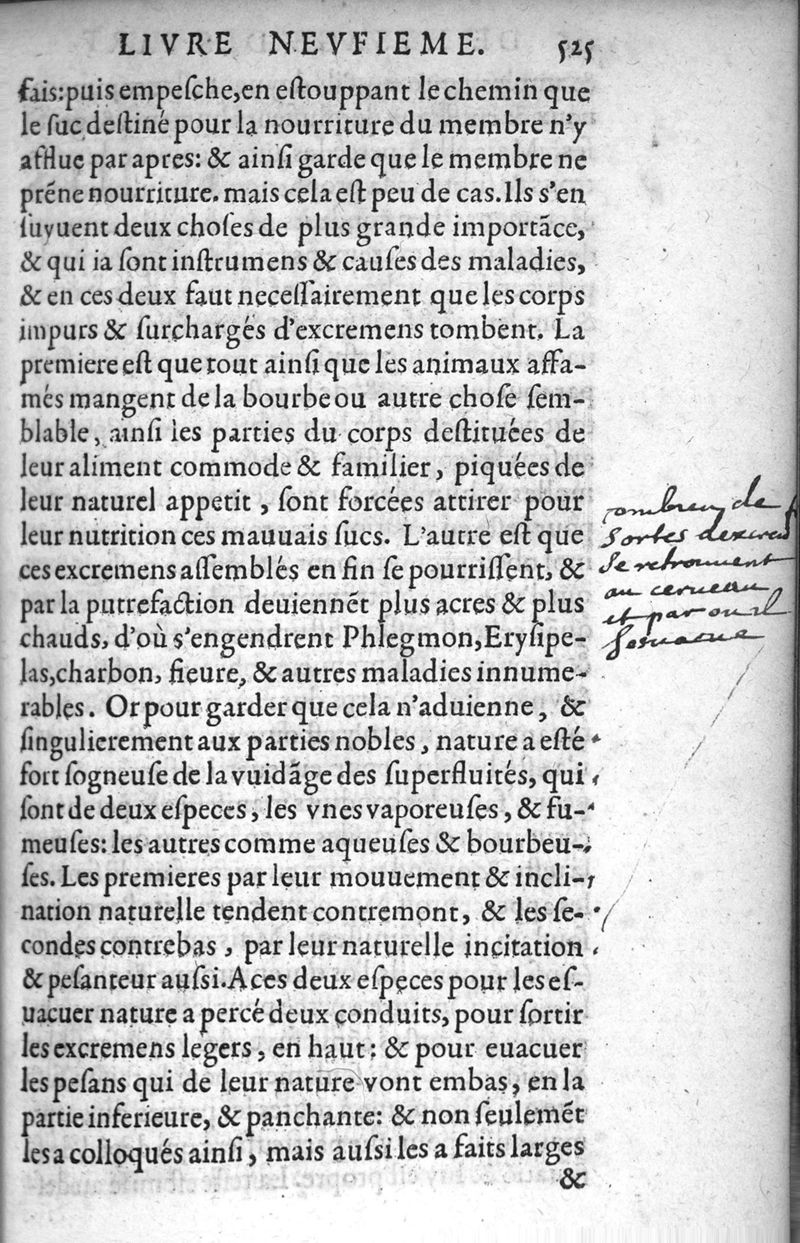 LIVRE NEVFIEME. 525
fais:puis empeſche,en eſtouppant le chemin que
le ſuc deſtiné pour la nourriture du membre n'y
afflue par apres: & ainſi garde que le membre ne
prẽne nourriture. mais cela eſt peu de cas. Ils s'en
ſuyuent deux choſes de plus grande importãce,
& qui ia ſont inſtrumens & cauſes des maladies,
& en ces deux faut neceſſairement que les corps
impurs & ſurchargés d'excremens tombent. La
premiere eſt que tout ainſi que les animaux affa-
més mangent de la bourbe ou autre choſe ſem-
blable, ainſi les parties du corps deſtituées de
leur aliment commode & familier, piquées de
leur naturel appetit, ſont forcées attirer pour
leur nutrition ces mauuais ſucs. L'autre eſt que
ces excremens aſſemblés en fin ſe pourriſſent, &
par la putrefaction deuiennẽt plus acres & plus
chauds, d'où s'engendrent Phlegmon, Eryſipe-
las,charbon, fieure, & autres maladies innume-
rables. Or pour garder que cela n'aduienne, &
ſingulierement aux parties nobles, nature a eſté
fort ſogneuſe de la vuidãge des ſuperfluités, qui
ſont de deux eſpeces, les vnes vaporeuſes, & fu-
meuſes: les autres comme aqueuſes & bourbeu-
ſes. Les premieres par leur mouuement & incli-
nation naturelle tendent contremont, & les ſe-
condes contrebas, par leur naturelle incitation
& peſanteur auſsi. A ces deux eſpeces pour les eſ-
uacuer nature a percé deux conduits, pour ſortir
les excremens legers, en haut: & pour euacuer
les peſans qui de leur nature vont embas, en la
partie inferieure, & panchante: & non ſeulemẽt
les a colloqués ainſi, mais auſsi les a faits larges
&
combien de
sortes dexcre
se retrouuent
au cerueau
et par ou il
seuacue